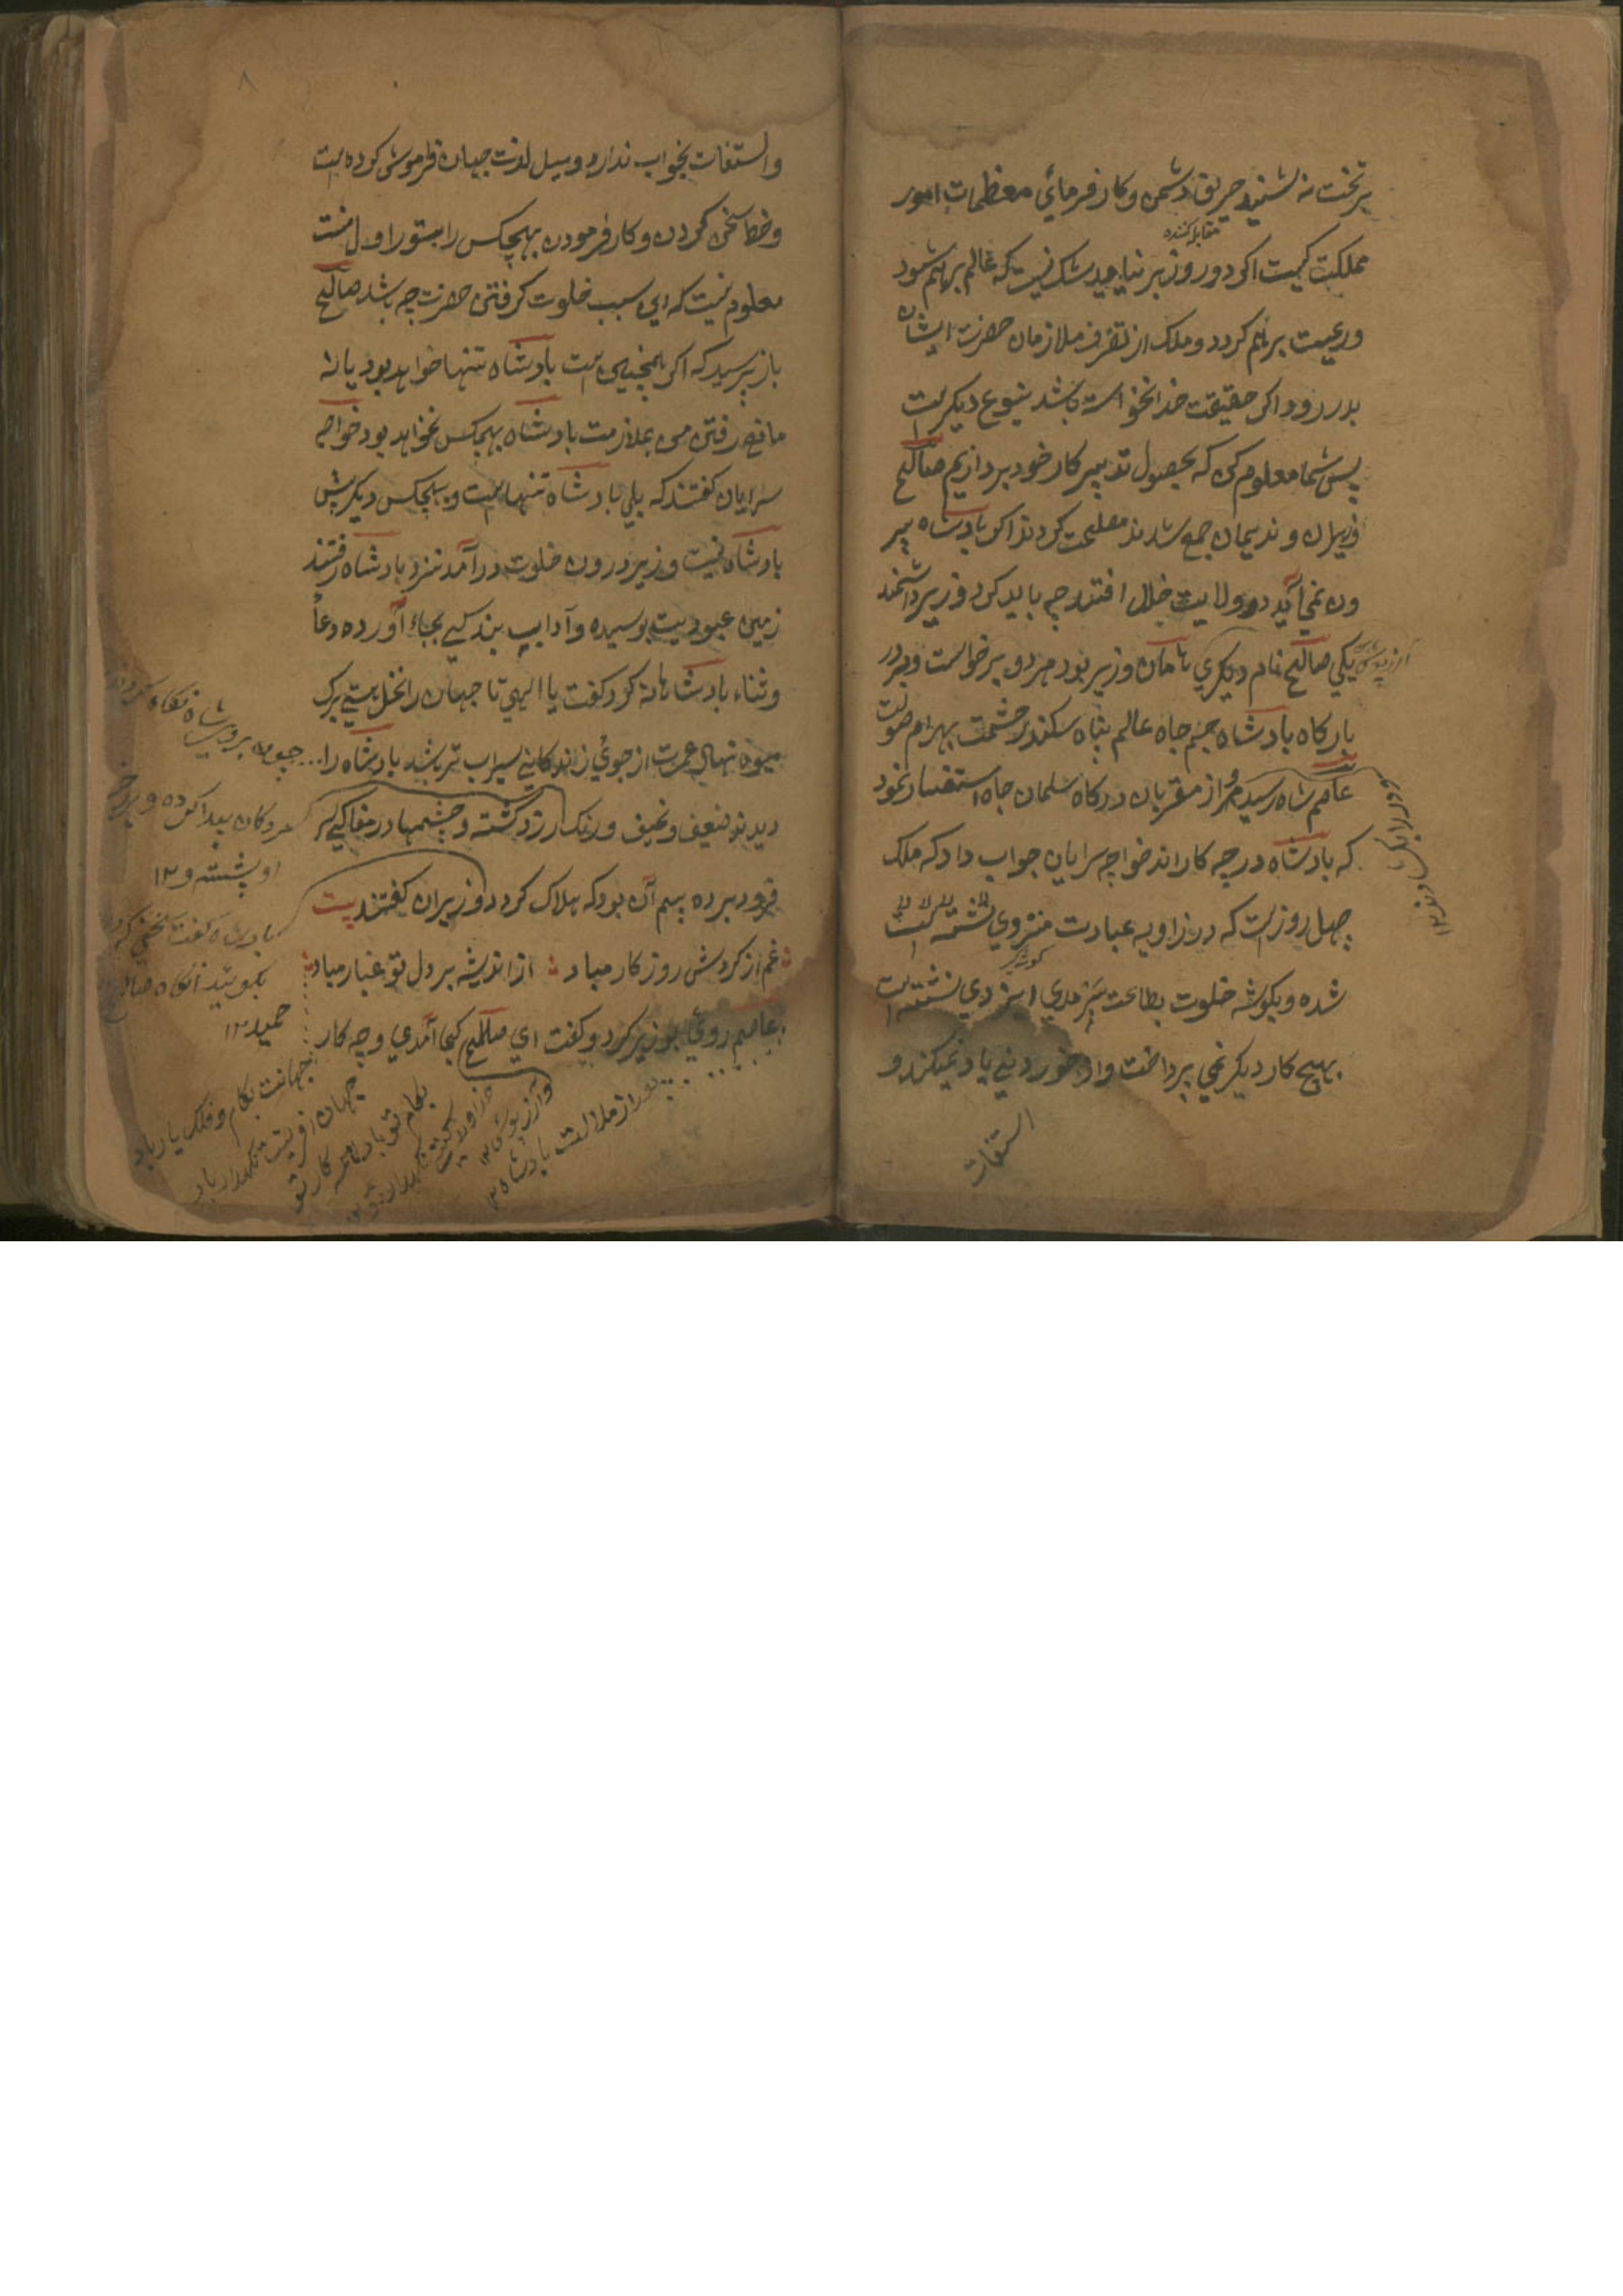 بر تخت نه نشنید حریق دشمن و کار فرمائی معظمات امور
مقابله کننده
مملکت کیست اکر دو روز بر نیاید شک نیست که عالم برهم شود
و رعیت برهم کردد و ملک از تصرف ملازمان حضرت ایشان
بدر رود اکر حقیقت خدا نخواسته باشد بنوع دیکر است
پس شما معلوم کن که بحصول تدبیر کار خود پردازیم صالح
وزیران و ندیمان جمع شدند مصلحت کردند اکر بادشاه بیر
ون نمی آید در ولایت خلل افتد چه باید کرد دو وزیر دانشمند
یکی صالح نام دیکری نامان وزیر بود هر دو برخواست و بر در
بارکاه بادشاه جم جاه عالم پناه سکندر حشمت بهرام صولت
عاصم شاه رسید از مقربان درکاه سلمان جاه استفسار نمود
که بادشاه در چه کار اند خواجه سرایان جواب داد که ملک
چهل روز است که در زاویه عبادت منزوی نشسته است
شده و بکوشه خلوت بطاعت ایزدی نشسته است
بهیچ کار دیکر نمی پرداخت و از خوردنی یاد نمیکند و
استفات
۸
والتفات بخواب ندارد و میل لذت جهان فرموش کرده است
و خطا سخن کردن و کار فرمودن بهیچکس را بستور اول نیست
معلوم نیست که این سبب خلوت کرفتن حضرت چه باشد صالح
باز پرسید که اکر همچنین است بادشاه تنها خواهد بود یا نه
مانع رفتن من بملازمت بادشاه بهیچکس نخواهد بود خواجه
سرایان کفتند که بلی بادشاه تنها است و بهیچکس دیکر پیش
بادشاه نیست وزیر درون خلوت در آمد نزد بادشاه رفتند
زمین عبودیت بوسیده و آداب بندکی بجاء آورده دعا
و ثناء بادشاهانه کرد کفت یا الهی تا جهان را نخل هستی برک
میوه نهال عمرت از جوی زندکانی سیراب تر باشد بادشاه را
دیدند ضعیف و نحیف و رنک زرد کشته و چشمها در مغاکی سر
فرود برده بیم آن بود که هلاک کردد وزیران کفتند بیت
غم از کردش روزکار مباد از اندیشه بر دل تو غبار مباد
عاصم روی بوزیر کرد و کفت ای صالح کجا آمدی و چه کار
چون بروی شاه نکاه کرد
مردکان پیدا کرده و بر
او نشسته ۱۲
بادشاه کفت
بکوئید آنکاه صالح
حمید ۱۲
جهانت بکام و فلک یار باد
جهان آفرینت نکهدار باد
بکام تو باد همه کار تو
دور از ملالت بادشاه ۱۲